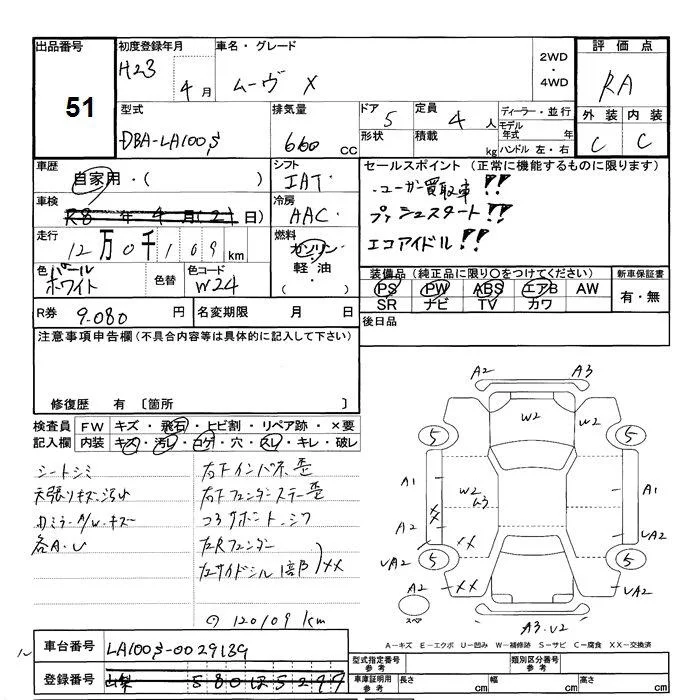 出品番号
51
初度登録年月
H23 4 月
車名・グレード
ムーヴ X
2WD
・
4WD
評価点
RA
外装 内装
C C
型式
DBA-LA100S
排気量
660 CC
ドア 5
形状
定員 4 人
積載 kg
ディーラー・並行
モデル年式 年
ハンドル 左・右
車歴
自家用・( )
車検
R8 年 4 月 (21 日)
走行
12 万 0 千 109 km
色 パールホワイト
色替
色コード
W24
シフト
IAT
冷房
AAC
燃料
ガソリン・
軽油・
( )
セールスポイント (正常に機能するものに限ります)
・ユーザー買取車!!
プッシュスタート!!
エコアイドル!!
装備品 (純正品に限り〇をつけてください)
PS PW ABS エアB AW
SR ナビ TV カワ
新車保証書
有・無
後日品
R券 9.080 円
名変期限 月 日
注意事項申告欄 (不具合内容等は具体的に記入して下さい)
修復歴 有 〔箇所 〕
検査員記入欄
FW キズ・飛石・ヒビ割・リペア跡・×要
内装 キズ・汚レ・コゲ・穴・スレ・キレ・破レ
シートシミ
天張りキズ・汚れ
各A・U
右Fインパネ歪
右Fフェンダーステー歪
コアサポート・シワ
左Rフェンダー
左サイドシル1部 XX
120109 km
A2 A3
W2 W2
5 5
A1 A1
W2 ム3
XX
A2
UA2 UA2
5 5
XX
A2 XX UA2
スペア
A3・U2
A-キズ E-エクボ U-凹み W-補修跡 S-サビ C-腐食 XX-交換済
車台番号 LA100S-0029139
登録番号 山梨 580 ほ 5299
型式指定番号 参考
類別区分番号 参考
車庫証明用 参考
長さ cm 幅 cm 高さ cm